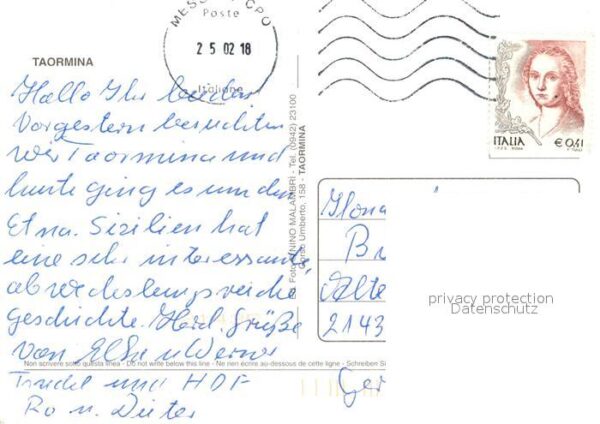 TAORMINA
MESS CPO
Poste
25 02 18
Italiane
ITALIA
€ 0,41
Hallo Ihr beiden
Vorgestern besuchten
wir Taormina und
heute ging es um den
Etna. Sizilien hat
eine sehr interessante
abwechslungsreiche
Geschichte. Herzl. Grüße
von Elke u Werner
Trudel und HDF
Ro u. Dieter
Foto: NINO MALAMBRI - Tel. (0942) 23100
Corso Umberto, 158 - TAORMINA
Ilona
Br
Alte
2143
Ger
privacy protection
Datenschutz
Non scrivere sotto questa linea - Do not write below this line - Ne rien écrire au-dessous de cette ligne - Schreiben Si